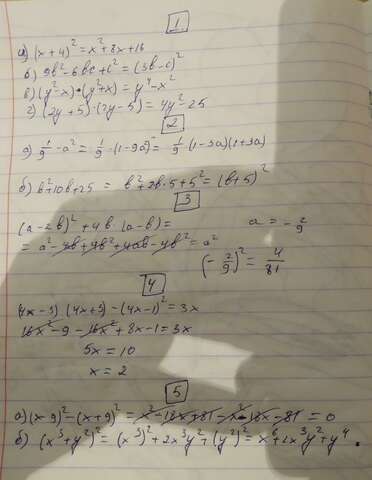 1
а) (x+4)² = x²+8x+16
б) 9b²-6bc+c² = (3b-c)²
в) (y²-x)•(y²+x) = y⁴-x²
г) (2y+5)·(2y-5) = 4y²-25
2
а) 1/9 - a² = 1/9·(1-9a)² = 1/9·(1-3a)(1+3a)
б) b²+10b+25 = b²+2b·5+5² = (b+5)²
3
(a-2b)²+4b·(a-b) = a = -2/9
= a²-4b+4b²+4ab-4b² = a²
(-2/9)² = 4/81
4
(4x-3)(4x+3)-(4x-1)² = 3x
16x²-9-16x²+8x-1 = 3x
5x = 10
x = 2
5
а) (x-9)²-(x+9)² = x²-18x+81-x²-18x-81 = 0
б) (x³+y²)² = (x³)²+2x³y²+(y²)² = x⁶+2x³y²+y⁴.